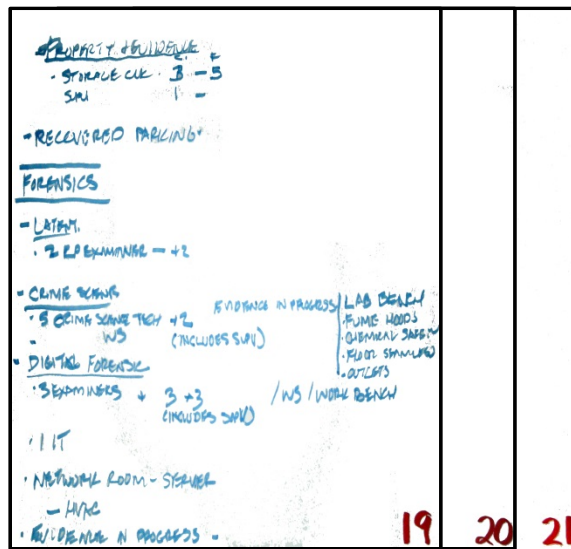 PROPERTY & EVIDENCE
• STORAGE CLK • 3 - 5
1 -
- RECOVERED PARKING
FORENSICS
- LATENT
• 2 LP EXAMINER - +2
- CRIME SCENE
• 5 CRIME SCENE TECH +2
WS (INCLUDES SUPV)
EVIDENCE IN PROGRESS
LAB BENCH
• FUME HOODS
• CHEMICAL SAFETY
• FLOOR SEAMLESS
• OUTLETS
• DIGITAL FORENSIC
• 3 EXAMINERS + 3 +3 / WS / WORK BENCH
(INCLUDES SUPV)
• 1 IT
• NETWORK ROOM - SERVER
- HVAC
• EVIDENCE IN PROGRESS -
19 20 21